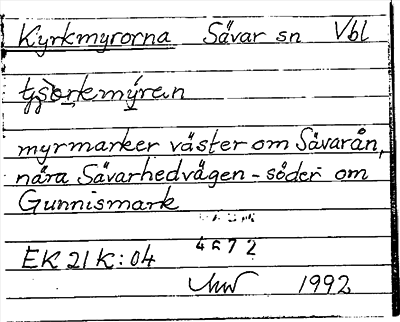 Kyrkmyrorna Sävar sn Vbl
myrmarker väster om Sävarån,
nära Sävarhedvägen - söder om
Gunnismark
4672
EK 21 K:04
1992